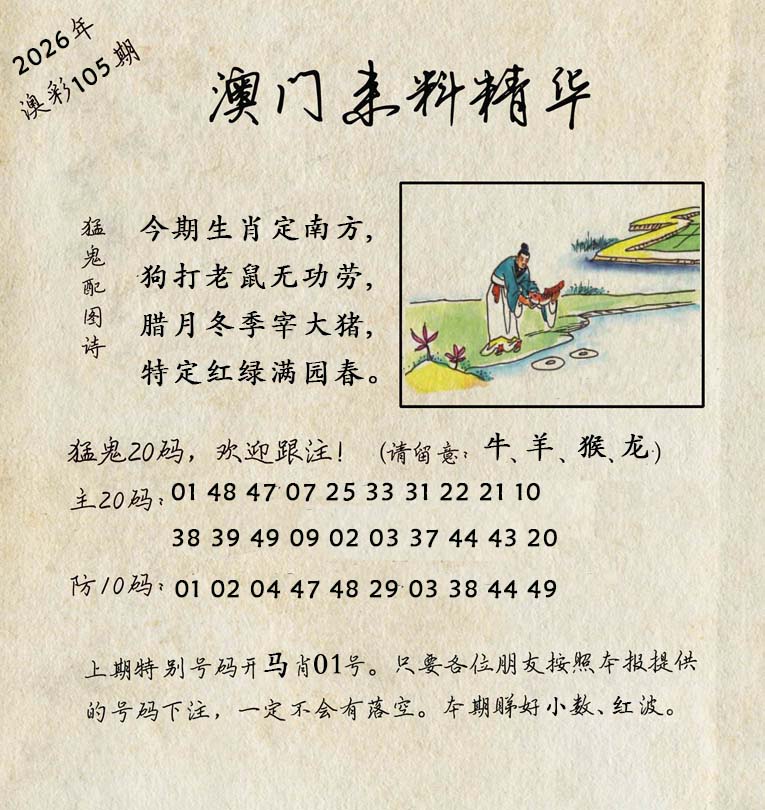 2026年
澳彩105期
澳门来料精华
猛鬼配图诗
今期生肖定南方,
狗打老鼠无功劳,
腊月冬季宰大猪,
特定红绿满园春。
猛鬼20码，欢迎跟注！ (请留意：牛、羊、猴、龙)
主20码：01 48 47 07 25 33 31 22 21 10
38 39 49 09 02 03 37 44 43 20
防10码：01 02 04 47 48 29 03 38 44 49
上期特别号码开马肖01号。只要各位朋友按照本报提供
的号码下注，一定不会有落空。本期睇好小数、红波。